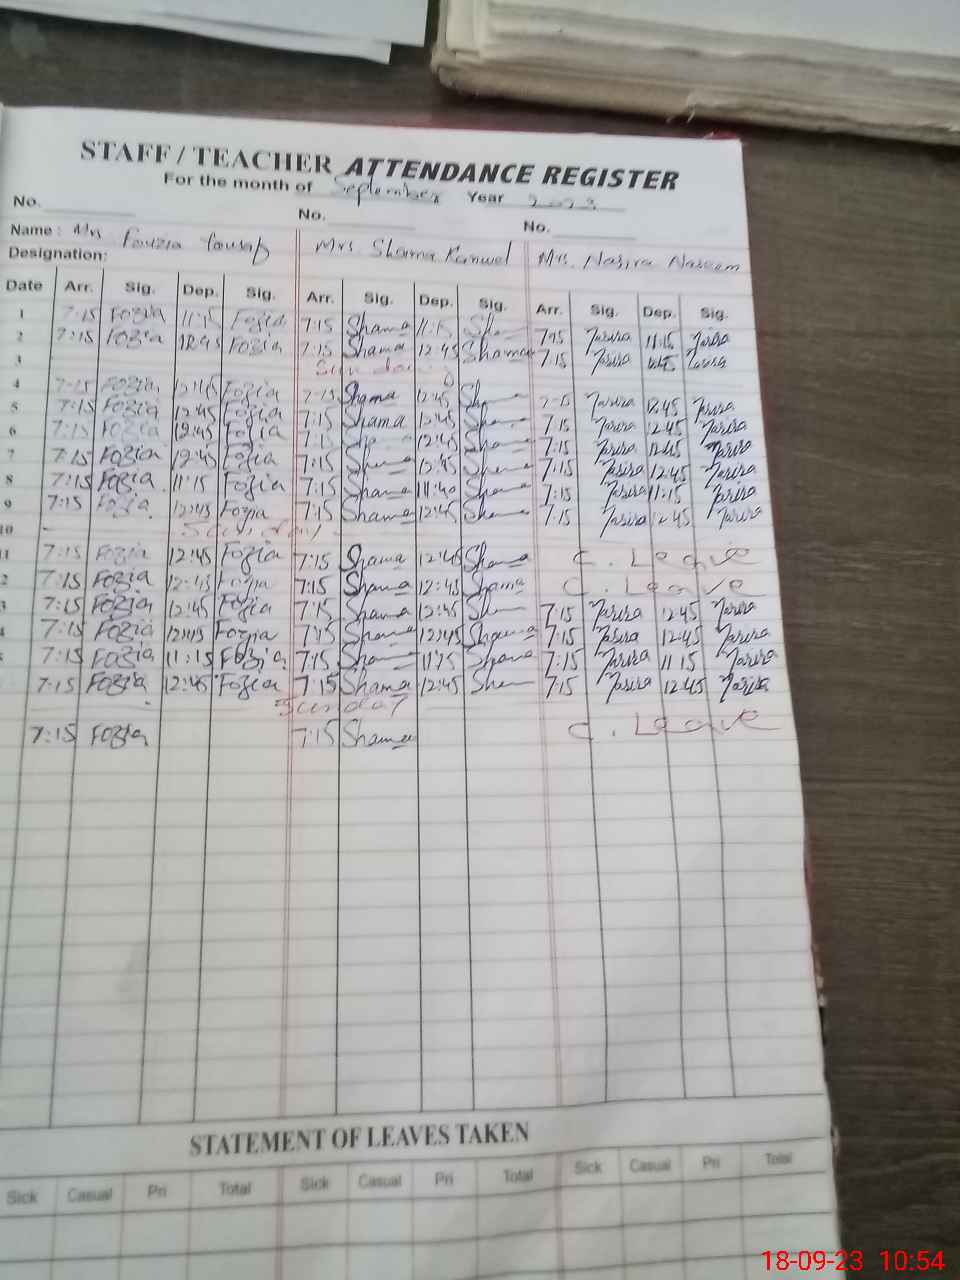 STAFF / TEACHER ATTENDANCE REGISTER
For the month of September Year 2023
No. No. No.
Name : Mrs Fouzia Yousaf Mrs. Shama Kanwel Mrs. Nasira Naseem
Designation:
Date Arr. Sig. Dep. Sig. Arr. Sig. Dep. Sig. Arr. Sig. Dep. Sig.
1 7:15 Fozia 11:15 Fozia 7:15 Shama 11:15 7:15 Nasira 11:15 Nasira
2 7:15 Fozia 12:45 Fozia 7:15 Shama 12:45 Shama 7:15 Nasira 12:45 Nasira
3 Sunday
4 7:15 Fozia 12:45 Fozia 7:15 Shama 12:45 Nasira 12:45 Nasira
5 7:15 Fozia 12:45 Fozia 7:15 Shama 12:45 7:15 Nasira 12:45 Nasira
6 7:15 Fozia 12:45 Fozia 7:15 12:45 7:15 Nasira 12:45 Nasira
7 7:15 Fozia 12:45 Fozia 7:15 Shama 12:45 7:15 Nasira 12:45 Nasira
8 7:15 Fozia 11:15 Fozia 7:15 Shama 11:40 Shama 7:15 Nasira 11:15 Nasira
9 7:15 Fozia 12:45 Fozia 7:15 Shama 12:45 7:15 Nasira 12:45 Nasira
10 Sunday
11 7:15 Fozia 12:45 Fozia 7:15 Shama 12:45 Shama C. Leave
2 7:15 Fozia 12:45 Fozia 7:15 Shama 12:45 Shama C. Leave
3 7:15 Fozia 12:45 Fozia 7:15 Shama 12:45 7:15 Nasira 12:45 Nasira
4 7:15 Fozia 12:45 Fozia 7:15 Shama 12:45 Shama 7:15 Nasira 12:45 Nasira
7:15 Fozia 11:15 Fozia 7:15 Shama 11:15 Shama 7:15 Nasira 11:15 Nasira
7:15 Fozia 12:45 Fozia 7:15 Shama 12:45 7:15 Nasira 12:45 Nasira
Sunday
7:15 Fozia 7:15 Shama C. Leave
STATEMENT OF LEAVES TAKEN
Sick Casual Pri Total Sick Casual Pri Total Sick Casual Pri Total
18-09-23 10:54